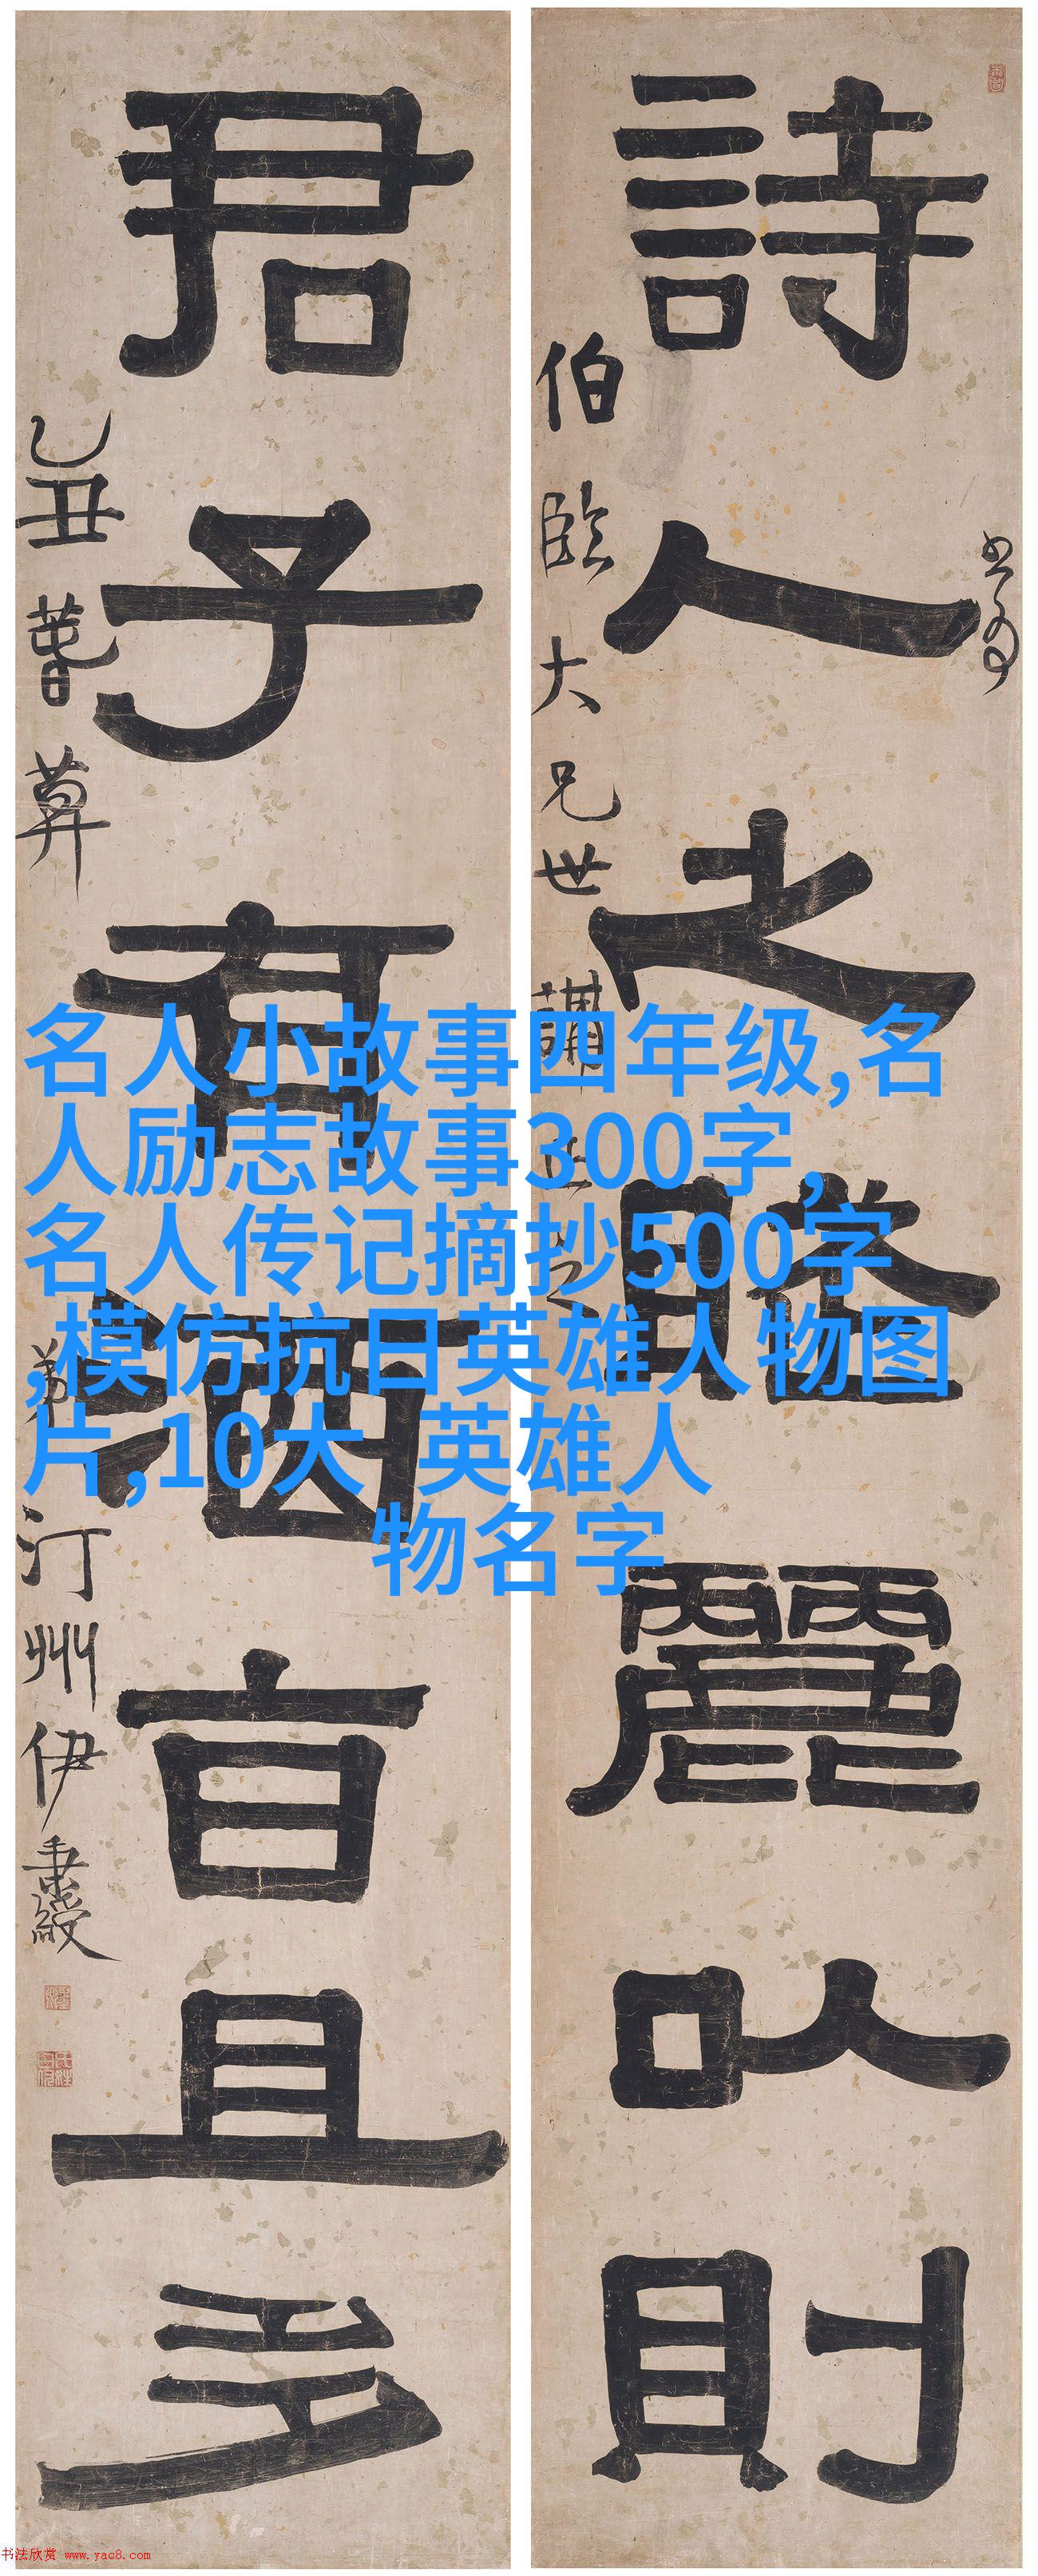 詩人之麗以則
伯臨大兄世講
君子有酒旨且多
乙丑
弟汀州伊秉綬
名人小故事四年级,名
人励志故事300字,
名人传记摘抄500字
,模仿抗日英雄人物图
片,10大 英雄人
物名字
书法欣赏 www.yac8.com